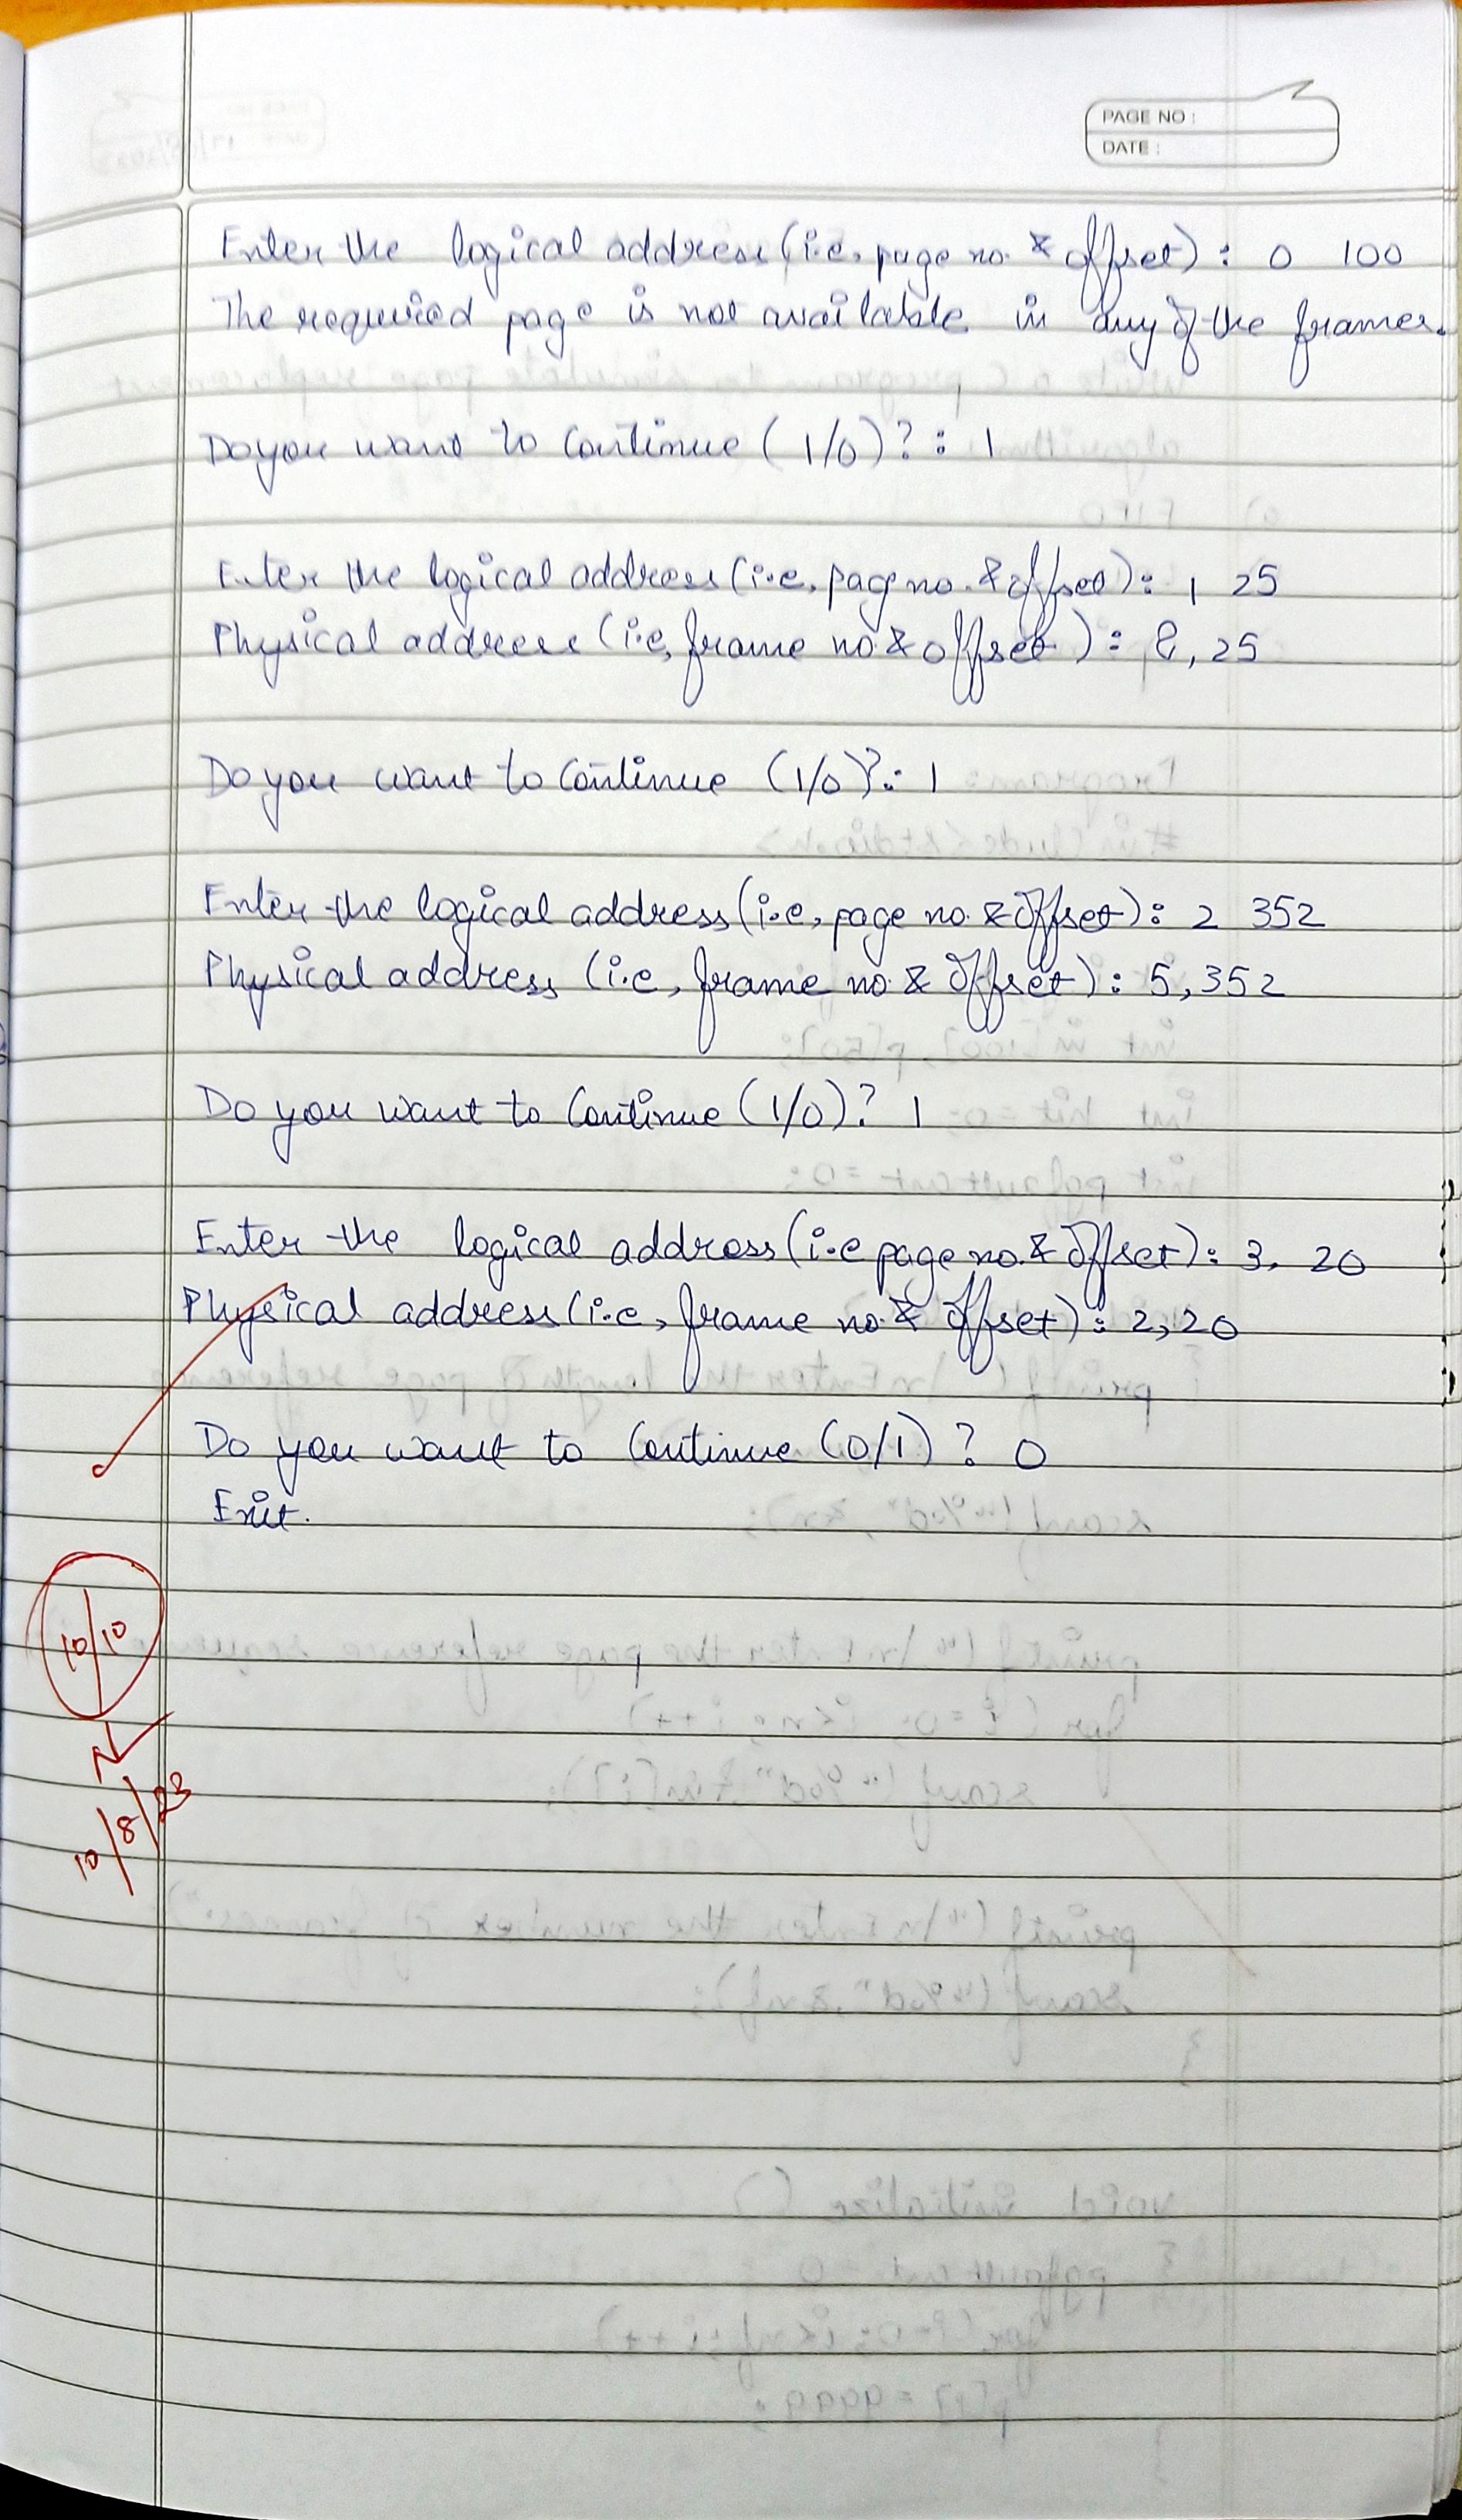 PAGE NO :
DATE :
Enter the logical address (i.e. page no. & offset) : 0 100
The required page is not available in any of the frames.
Do you want to continue (1/0)? : 1
Enter the logical address (i.e. page no. & offset) : 1 25
Physical address (i.e, frame no & offset) : 8, 25
Do you want to continue (1/0)? : 1
Enter the logical address (i.e, page no. & offset) : 2 352
Physical address (i.e, frame no. & offset) : 5, 352
Do you want to continue (1/0)? 1
Enter the logical address (i.e page no. & offset) : 3, 20
Physical address (i.e, frame no. & offset) : 2, 20
Do you want to continue (0/1) ? 0
Exit.
10/10
10/8/23